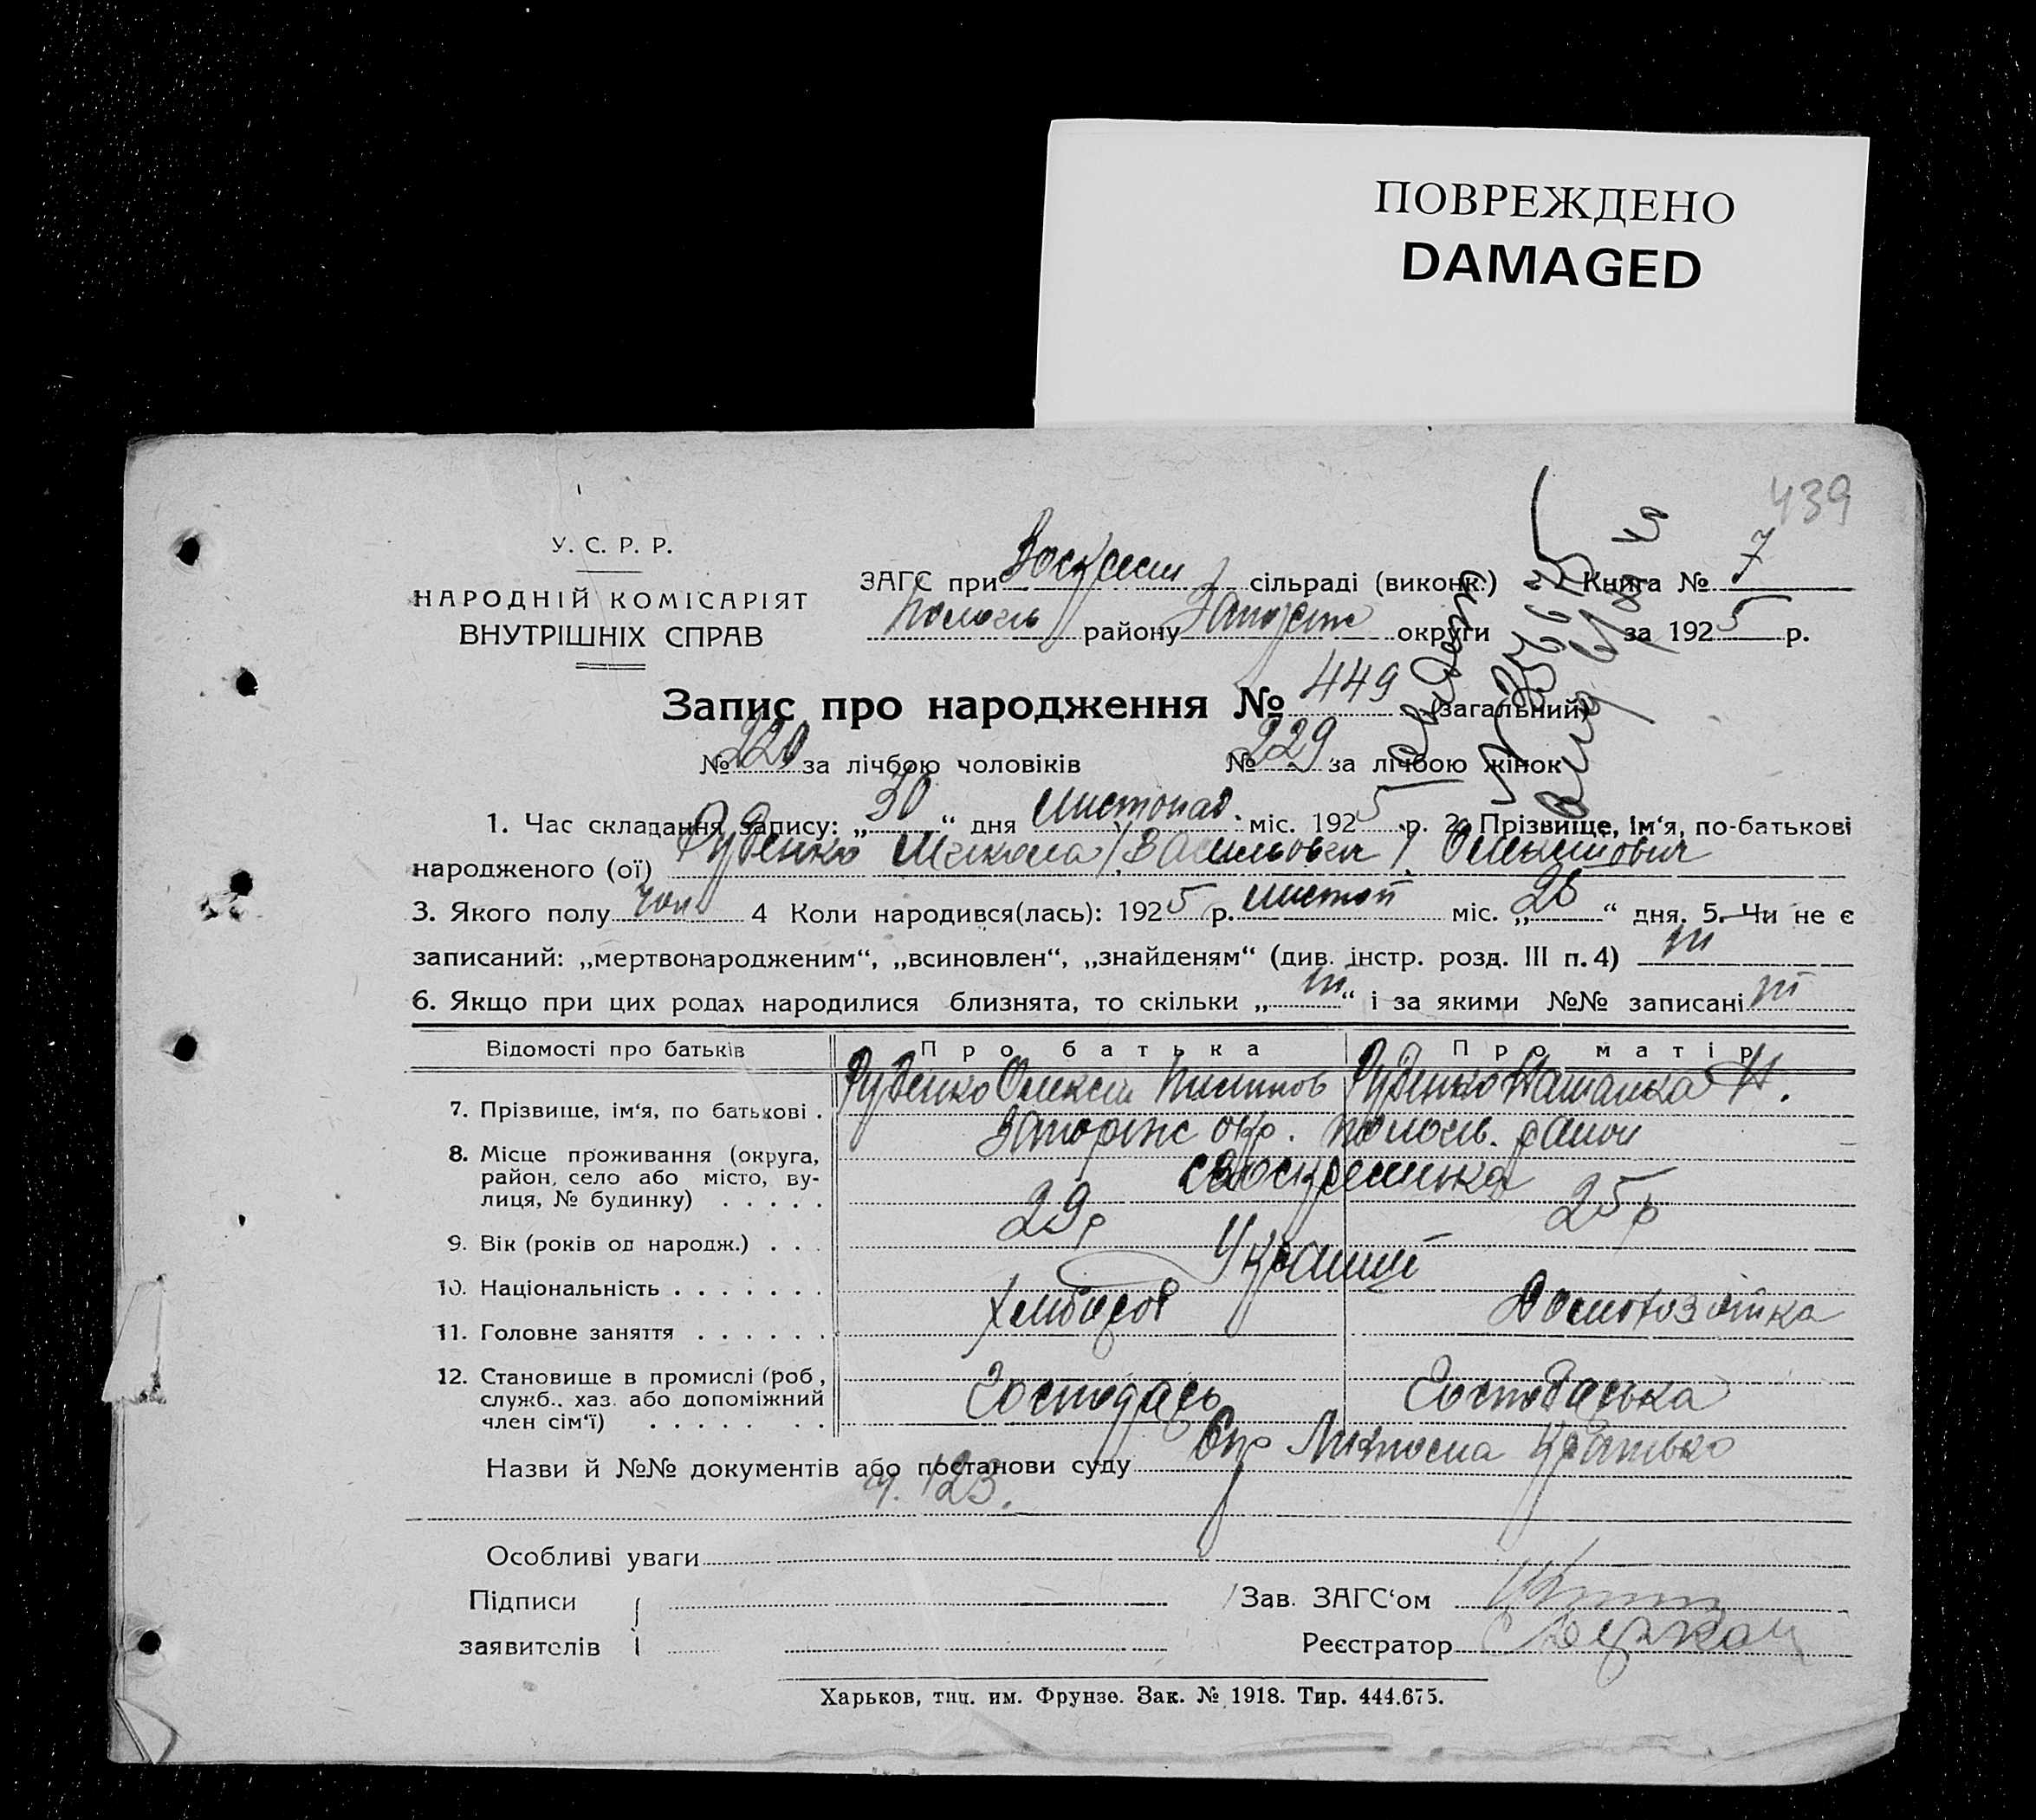 ПОВРЕЖДЕНО
DAMAGED
439
У. С. Р. Р.
НАРОДНІЙ КОМІСАРІЯТ
ВНУТРІШНІХ СПРАВ
ЗАГС при Воскресен сільраді (виконк.) Книга № 7
Пологів району Запоріж округи за 1925 р.
Запис про народження № 449 (загальний)
№ 220 за лічбою чоловіків № 229 за лічбою жінок
1. Час складання запису: „30“ дня Листопад. міс. 1925 р. 2. Прізвище, ім‘я, по-батькові
народженого (ої) Руденко Микола (Васильович) Олексійович
3. Якого полу чол 4 Коли народився(лась): 1925 р. листоп міс. „26“ дня. 5. Чи не є
записаний: „мертвонародженим“, „всиновлен“, „знайденям“ (див. інстр. розд. III п. 4) ні
6. Якщо при цих родах народилися близнята, то скільки „ні“ і за якими №№ записані ні
Відомості про батьків Про батька Про матір
7. Прізвище, ім‘я, по батькові . Руденко Олексій Пилипов Руденко Наталка Н.
8. Місце проживання (округа, Запоріж окр. Пологів. район
район, село або місто, ву- с Воскресенка
лиця, № будинку) . . . . .
9. Вік (років од народж.) . . . 29р 25р
10. Національність . . . . . . . Україн
11. Головне заняття . . . . . . Хлібороб Домогозяйка
12. Становище в промислі (роб.,
служб., хаз. або допоміжний Господарь Господарька
член сім‘ї) . . . . . . .
Назви й №№ документів або постанови суду
ч. 123.
Особливі уваги
Підписи Зав. ЗАГС‘ом
заявителів Реєстратор
Харьков, тип. им. Фрунзе. Зак. № 1918. Тир. 444.675.